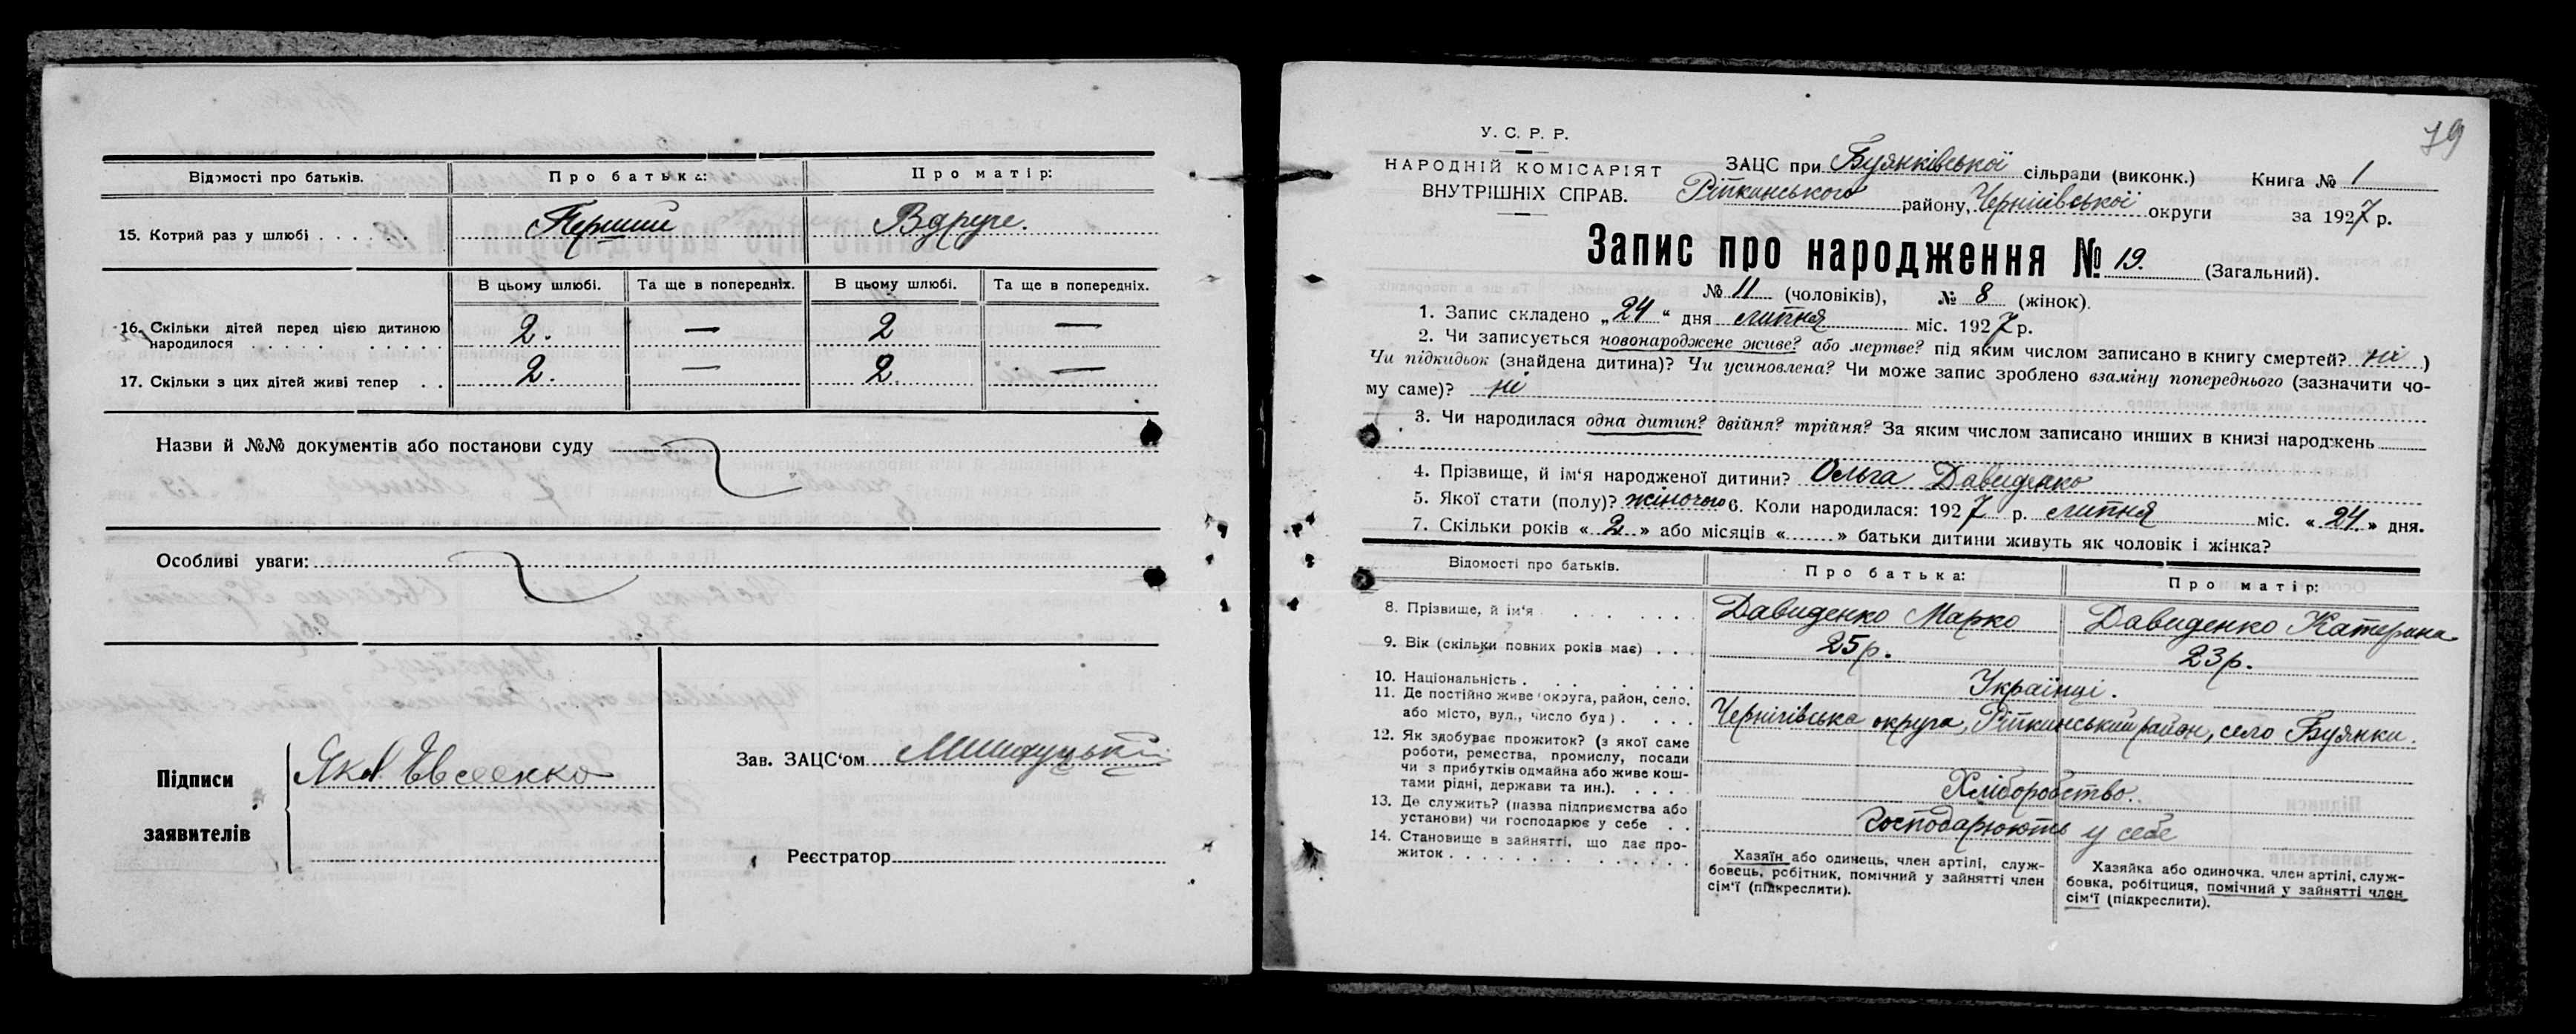 Відомості про батьків.
Про батька:
Про матір:
15. Котрий раз у шлюбі . . . . . . .
Перший
Вдруге.
В цьому шлюбі.
Та ще в попередніх.
В цьому шлюбі.
Та ще в попередніх.
16. Скільки дітей перед цією дитиною
народилося . . . . . . . . . . . .
2. — 2 —
17. Скільки з цих дітей живі тепер . .
2. — 2. —
Назви й №№ документів або постанови суду
Особливі уваги:
Підписи
заявителів
Як. Євсеенко
Зав. ЗАЦС‘ом
Реєстратор
79
У. С. Р. Р.
НАРОДНІЙ КОМІСАРІЯТ
ВНУТРІШНІХ СПРАВ.
ЗАЦС при Буянківської сільради (виконк.)
Книга № 1
Ріпкинського району, Чернігівської округи
за 1927 р.
Запис про народження № 19. (Загальний).
№ 11 (чоловіків), № 8 (жінок).
1. Запис складено „24“ дня липня міс. 1927 р.
2. Чи записується новонароджене живе? або мертве? під яким числом записано в книгу смертей? ні )
Чи підкидьок (знайдена дитина)? Чи усиновлена? Чи може запис зроблено взаміну попереднього (зазначити чо-
му саме)? ні
3. Чи народилася одна дитин? двійня? трійня? За яким числом записано инших в книзі народжень
4. Прізвище, й ім‘я народженої дитини? Ольга Давиденко
5. Якої стати (полу)? жіночого 6. Коли народилася: 1927 р. липня міс. «24» дня.
7. Скільки років «2» або місяців «......» батьки дитини живуть як чоловік і жінка?
Відомості про батьків.
Про батька:
Про матір:
8. Прізвище, й ім‘я . . . . . . .
Давиденко Марко
Давиденко Катерина
9. Вік (скільки повних років має) . . .
25р.
23р.
10. Національність . . . . . .
Українці.
11. Де постійно живе (округа, район, село,
або місто, вул., число буд) . . . .
Чернігівська округа, Ріпкинський район, село Буянки.
12. Як здобуває прожиток? (з якої саме
роботи, ремества, промислу, посади
чи з прибутків одмайна або живе кош-
тами рідні, держави та ин.). . . . .
Хліборобство.
13. Де служить? (назва підприємства або
установи) чи господарює у себе . .
Господарюють у себе
14. Становище в зайнятті, що дає про-
житок . . . . . . . . . . . . . .
Хазяїн або одинець, член артілі, служ-
бовець, робітник, помічний у зайнятті член
сім‘ї (підкреслити).
Хазяйка або одиночка. член артілі, служ-
бовка, робітциця, помічний у зайнятті член
сім‘ї (підкреслити).